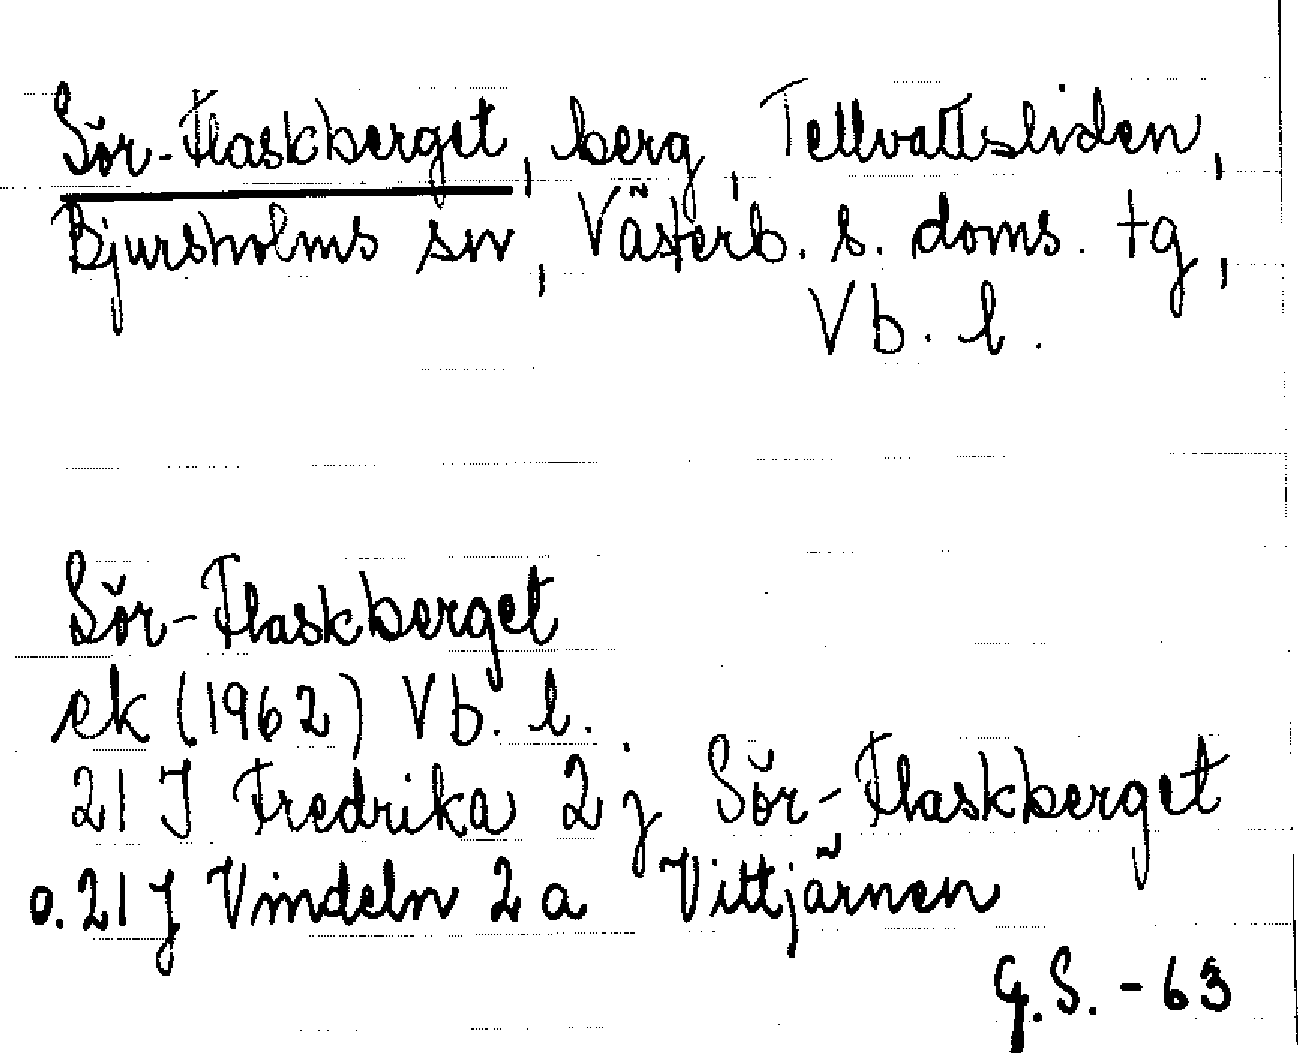 Sör-Flaskberget, berg, Tellvattsliden,
Bjursholms sn, Västerb. s. doms. tg,
Vb. l.
Sör-Flaskberget
ek (1962) Vb. l.
21 J Fredrika 2 j Sör-Flaskberget
o. 21 J Vindeln 2 a Vittjärnen
G.S. - 63